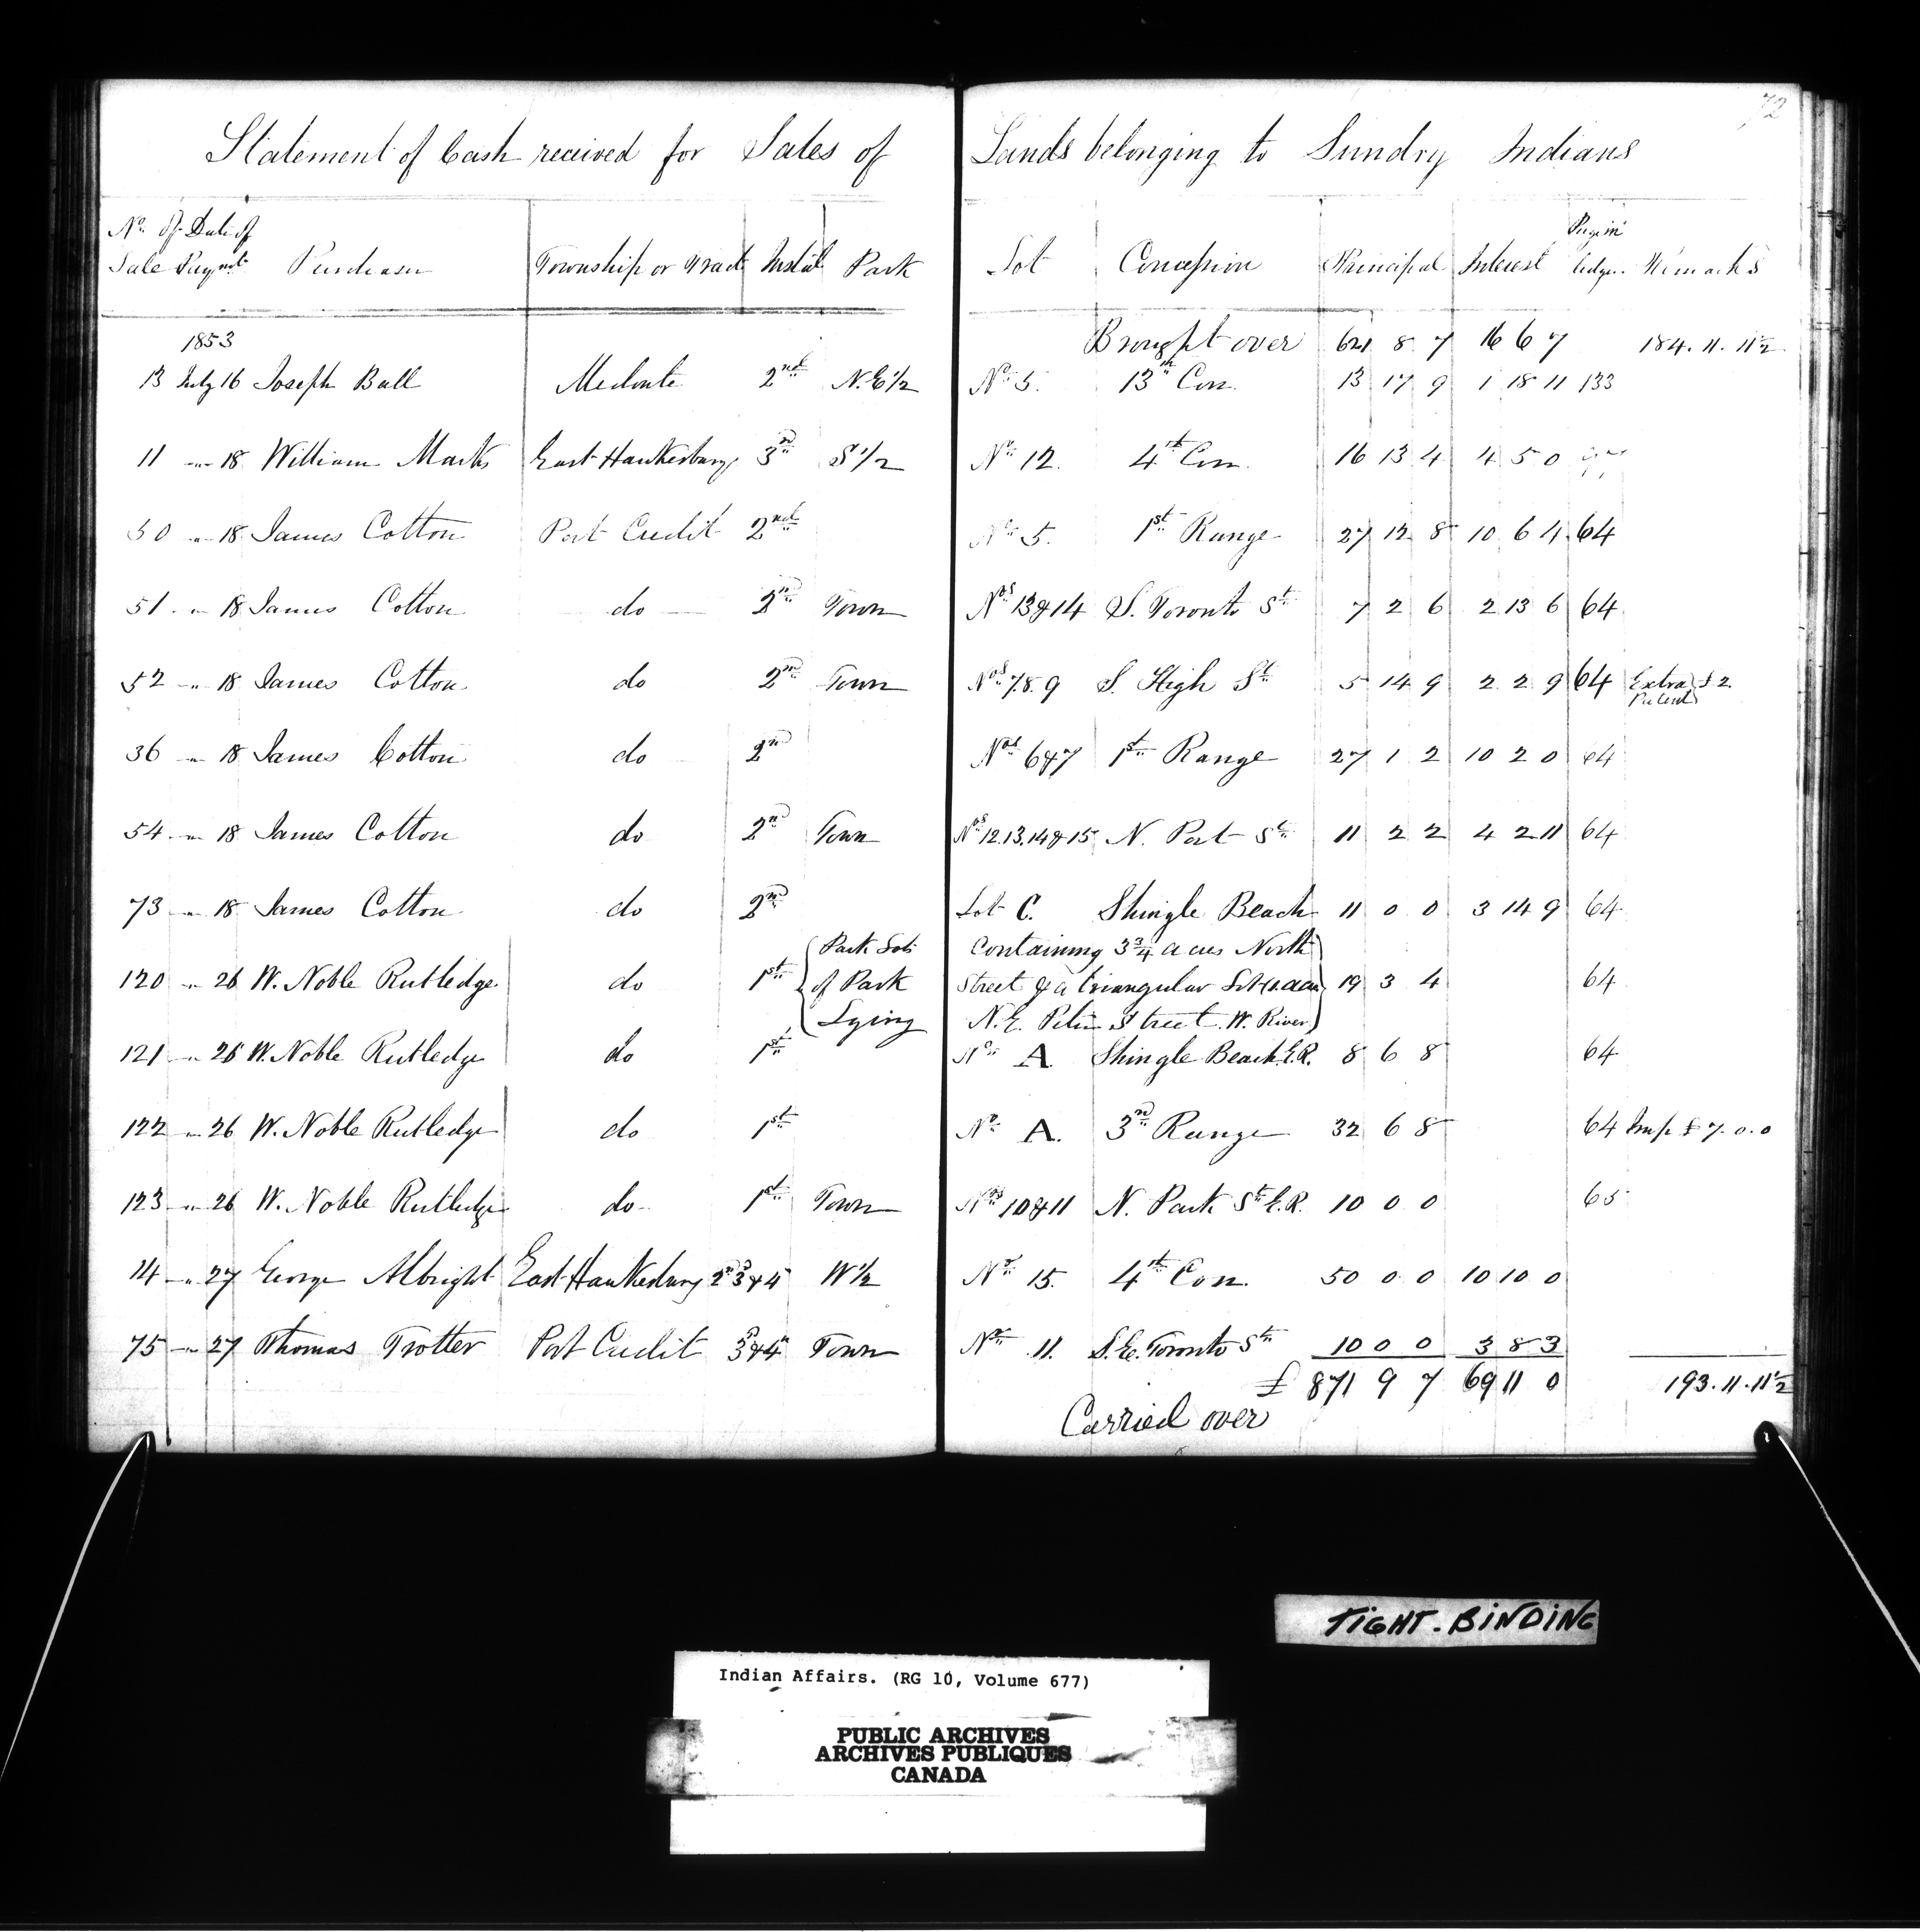 72
Statement of Cash received for Sales of Lands belonging to Sundry Indians
No. of Sale Date of Paymt Purchaser Township or Tract Instalt Part Lot Concession Principal Interest Page in ledger Remarks
1853 Brought over 621 8 7 16 6 7 184.11.11½
13 July 16 Joseph Ball Medonte 2nd N.E½ No 5. 13th Con. 13 17 9 1 18 11 133
11 -"- 18 William Marks East Hawkesbury 3rd S½ No 12. 4th Con. 16 13 4 4 5 0
50 -"- 18 James Cotton Port Credit 2nd No 5. 1st Range 27 12 8 10 6 4 64
51 -"- 18 James Cotton do 2nd Town Nos 13&14 S. Toronto St 7 2 6 2 13 6 64
52 -"- 18 James Cotton do 2nd Town Nos 7.8.9 S. High St 5 14 9 2 2 9 64 Extra Patent £2
36 -"- 18 James Cotton do 2nd Nos 6&7 1st Range 27 1 2 10 2 0 64
54 -"- 18 James Cotton do 2nd Town Nos 12.13.14&15 N. Port St 11 2 2 4 2 11 64
73 -"- 18 James Cotton do 2nd Lot C. Shingle Beach 11 0 0 3 14 9 64
Park Lots containing 3¾ acres North
120 -"- 26 W. Noble Rutledge do 1st of Park Street & a triangular Lot 19 3 4 64
Lying N.E. Peter Street W. River
121 -"- 26 W. Noble Rutledge do 1st No A Shingle Beach E.R. 8 6 8 64
122 -"- 26 W. Noble Rutledge do 1st No A. 3rd Range 32 6 8 64 Imp £7.0.0
123 -"- 26 W. Noble Rutledge do 1st Town Nos 10&11 N. Park St E.R. 10 0 0 65
14 -"- 27 George Albright East Hawkesbury 2nd 3&4 W½ No 15. 4th Con. 50 0 0 10 10 0
75 -"- 27 Thomas Trotter Port Credit 3&4 Town No 11. S.E. Toronto St 10 0 0 3 8 3
£ 871 9 7 69 11 0 193.11.11½
Carried over
TIGHT-BINDING
Indian Affairs. (RG 10, Volume 677)
PUBLIC ARCHIVES
ARCHIVES PUBLIQUES
CANADA